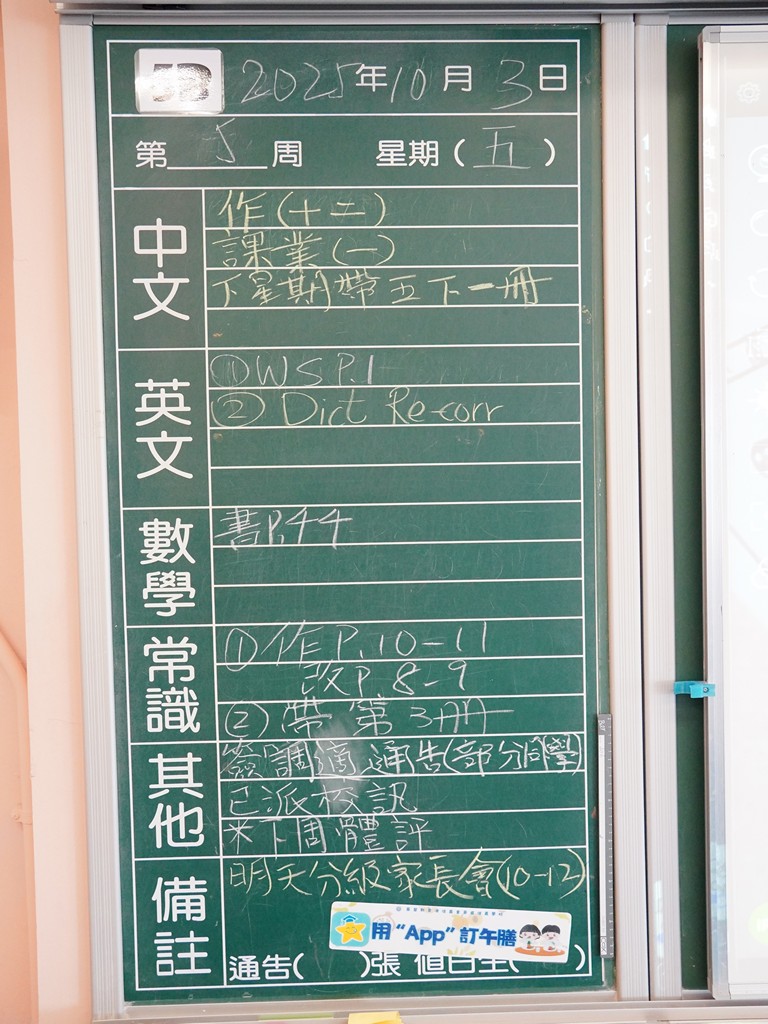 5D 2025年10月3日
第5周 星期(五)
中文
作(十二)
課業(一)
下星期帶五下一冊
英文
①WS P.1
② Dict Re-corr
數學
書P.44
常識
①作P.10-11
改P.8-9
②帶第3冊
其他
簽調適通告(部分同學)
已派校訊
*下周體評
備註
明天分級家長會(10-12)
用“App”訂午膳
通告( )張 值日生( )